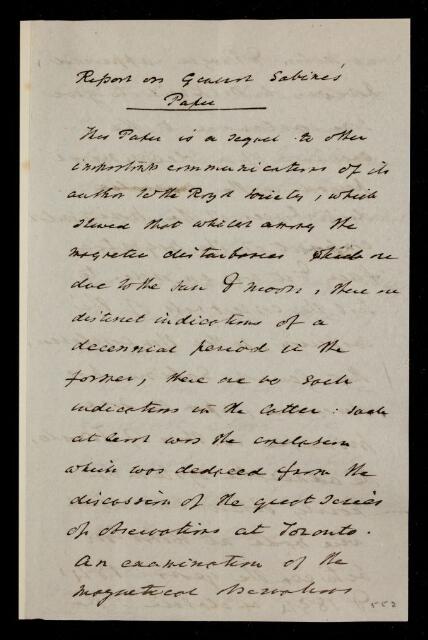 Report on General Sabine's
Paper
This Paper is a sequel to other
important communications of its
author to the Royal Society, which
shewed that whilst among the
magnetic disturbances which are
due to the sun & moon, there are
distinct indications of a
decennial period in the
former, there are no such
indications in the latter: such
at least was the conclusion
which was deduced from the
discussion of the great series
of observations at Toronto.
An examination of the
magnetical observations
552